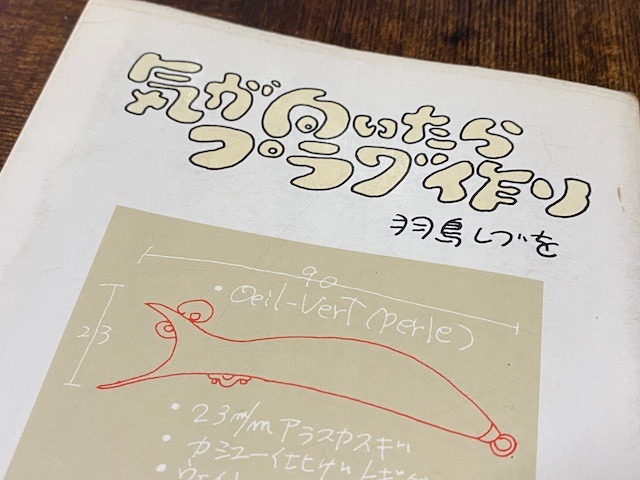 気が向いたら
プラグ作り
羽鳥しづを
90
• Oeil-Vert (perle)
23
• 23m/m アラスカスギ
• カミユー仕上げ